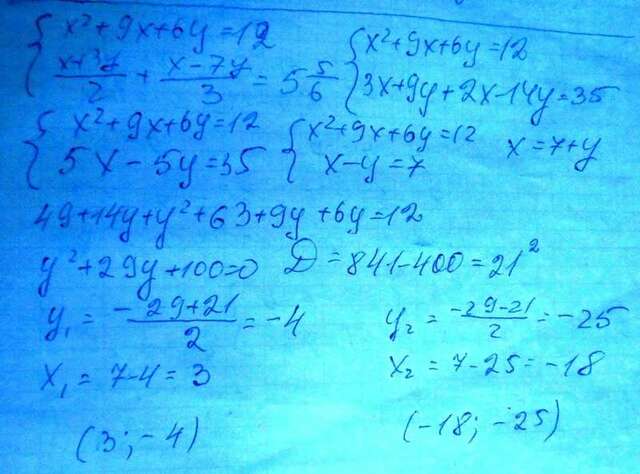 { x²+9x+6y=12
{ (x+3y)/2 + (x-7y)/3 = 5 5/6
{ x²+9x+6y=12
{ 3x+9y+2x-14y=35
{ x²+9x+6y=12
{ 5x-5y=35
{ x²+9x+6y=12
{ x-y=7
x=7+y
49+14y+y²+63+9y+6y=12
y²+29y+100=0 D=841-400=21²
y₁=(-29+21)/2=-4 y₂=(-29-21)/2=-25
x₁=7-4=3 x₂=7-25=-18
(3;-4) (-18;-25)